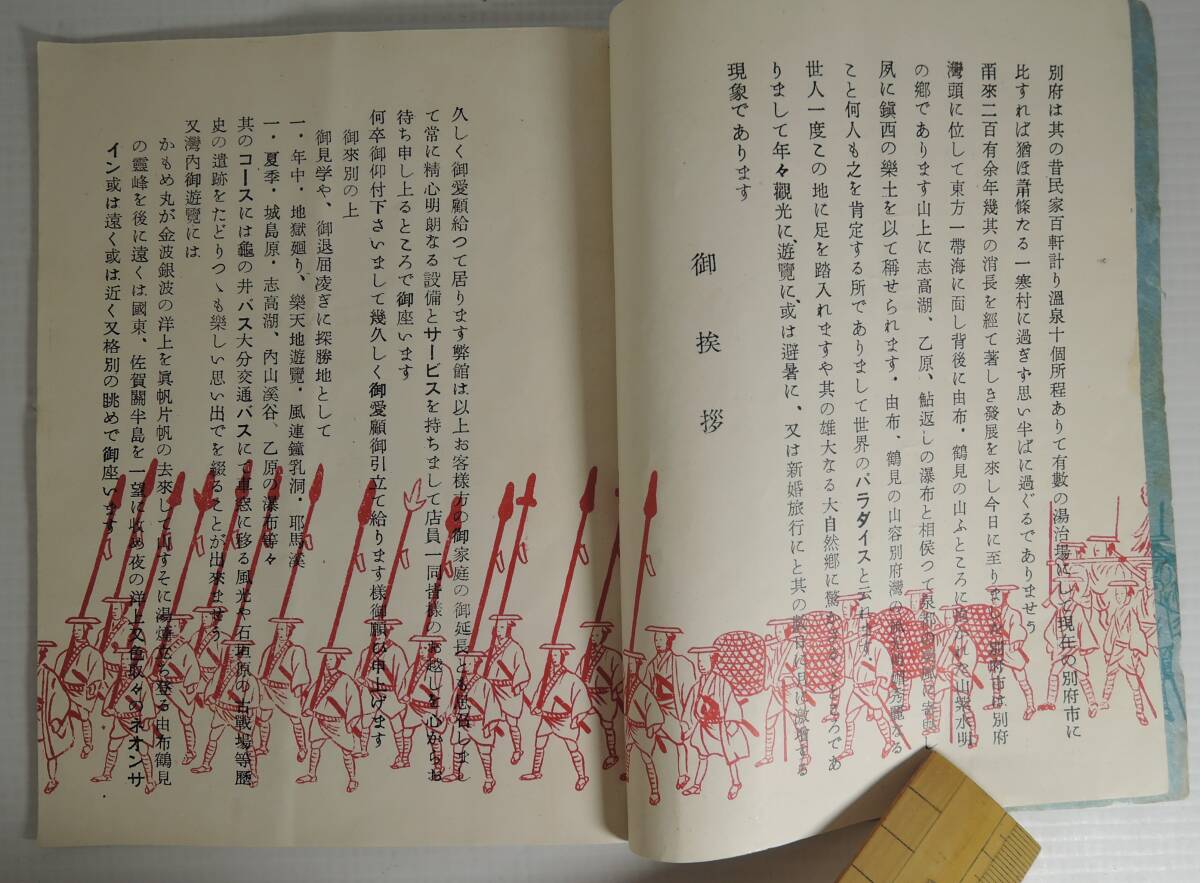 別府は其の昔民家百軒計り溫泉十個所程ありて有數の湯治場にして現在の別府市に
比すれば猶ほ蕭條たる一寒村に過ぎず思い半ばに過ぐるでありませう
甭來二百有余年幾其の消長を經て著しき發展を來し今日に至りま 別府市は別府
灣頭に位して東方一帶海に面し背後に由布・鶴見の山ふところに 山紫水明
の鄕であります山上に志高湖、乙原、鮎返しの瀑布と相俟つて泉都の
夙に鎭西の樂土を以て稱せられます・由布、鶴見の山容別府灣の 秀麗なる
こと何人も之を肯定する所でありまして世界のパラダイスと云 ます・
世人一度この地に足を踏入れますや其の雄大なる大自然鄕に驚 ところであ
りまして年々觀光に、遊覽に、或は避暑に、又は新婚旅行にと其の 激增する
現象であります
御挨拶
久しく御愛顧給つて居ります弊館は以上お客樣方の御家庭の御延長とも思召しまし
て常に精心明朗なる設備とサービスを持ちまして店員一同皆樣のお越しを心からお
待ち申し上るところで御座います
何卒御仰付下さいまして幾久しく御愛顧御引立て給ります樣御願ひ申上げます
御來別の上
御見学や、御退屈凌ぎに探勝地として
一・年中・地獄廻り、樂天地遊覽・風連鐘乳洞・耶馬溪
一・夏季・城島原・志高湖、內山溪谷、乙原の瀑布等々
其のコースには龜の井バス大分交通バスにて車窓に移る風光や石垣原の古戰場等歷
史の遺跡をたどりつゝも樂しい思い出でを綴ることが出來ませう
又灣內御遊覽には
かもめ丸が金波銀波の洋上を眞帆片帆の去來して山すそに湯煙立ち登る由布鶴見
の靈峰を後に遠くは國東、佐賀關半島を一望に收め夜の洋上又色取々のネオンサ
イン或は遠く或は近く又格別の眺めで御座います